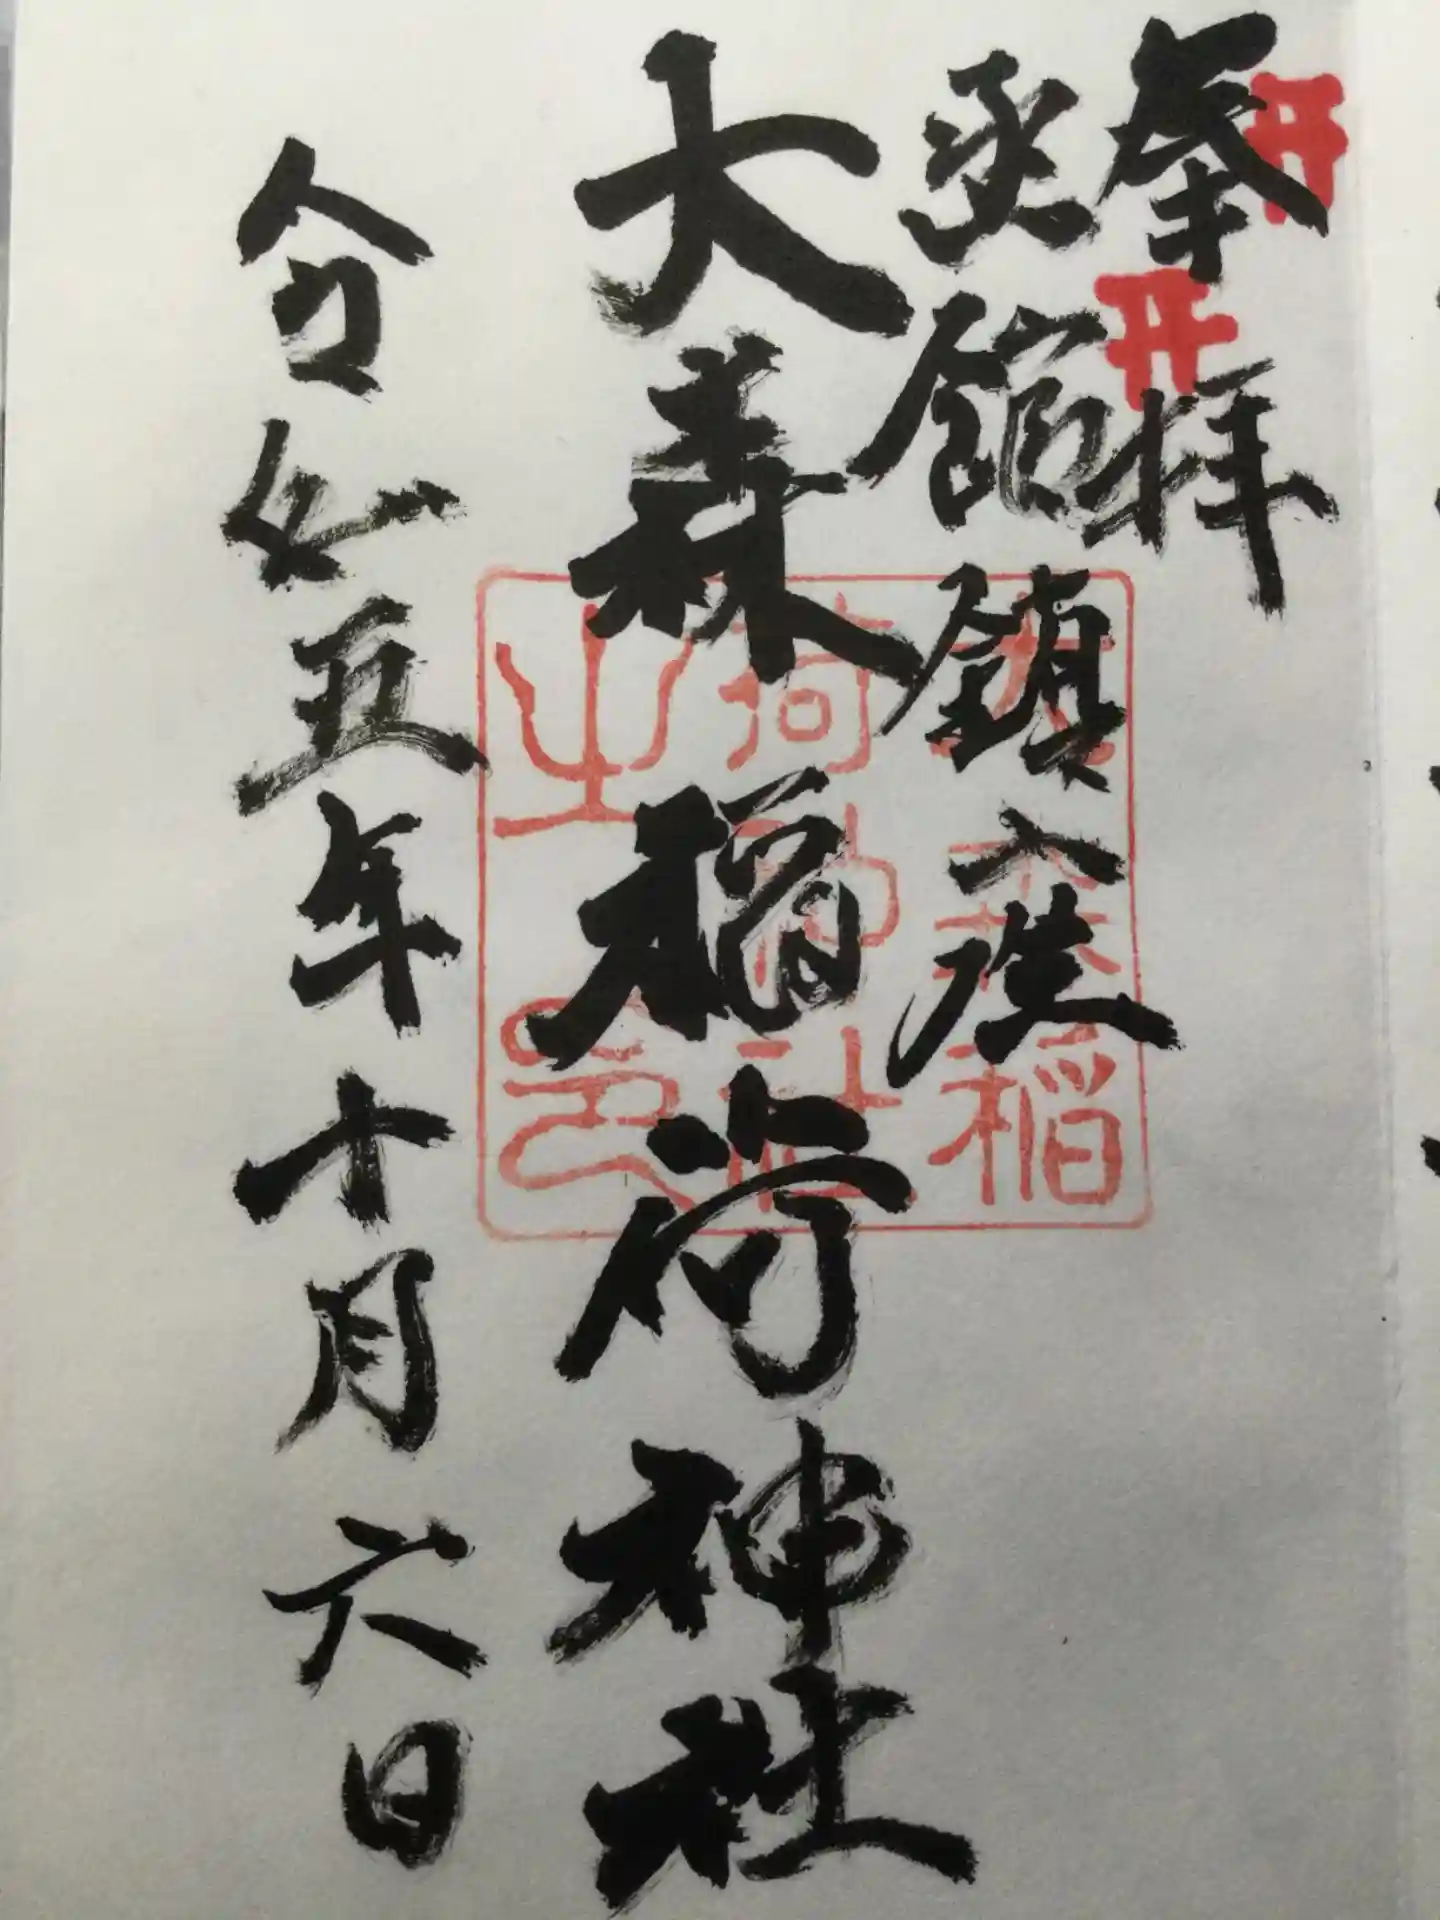 奉拝
函館鎮座
大森稲荷神社
令和五年十月六日
大森稲
荷神社
之印